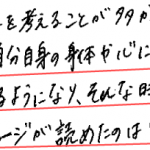 を考えることが多々が
自分自身の身体や心に
るようになり、そんな時
ージが読めたのは